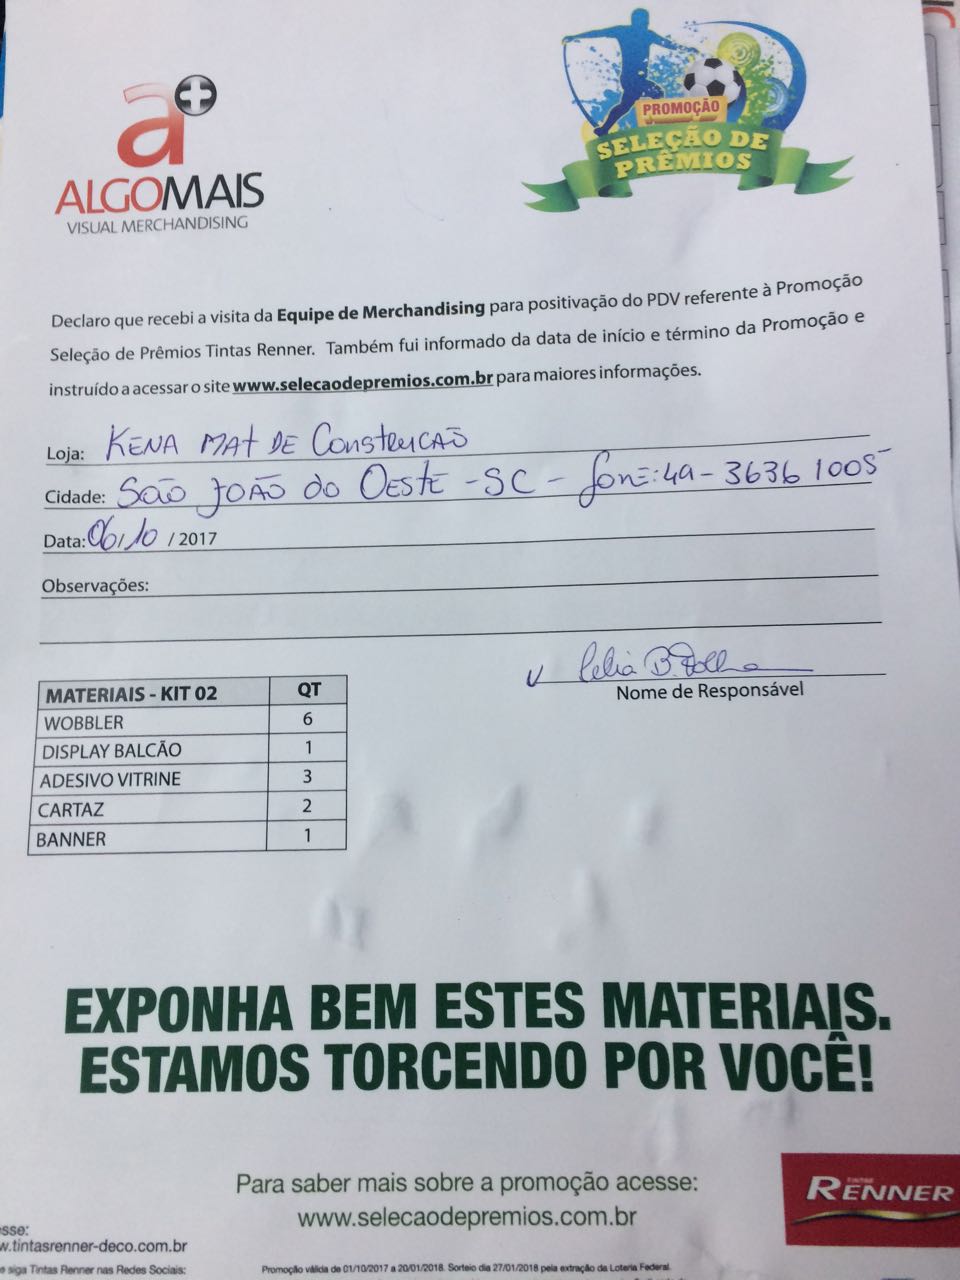 a+
ALGOMAIS
VISUAL MERCHANDISING
PROMOÇÃO
SELEÇÃO DE
PRÊMIOS
Declaro que recebi a visita da Equipe de Merchandising para positivação do PDV referente à Promoção
Seleção de Prêmios Tintas Renner. Também fui informado da data de início e término da Promoção e
instruído a acessar o site www.selecaodepremios.com.br para maiores informações.
Loja: KENA MAT DE CONSTRUCAO
Cidade: SÃO JOÃO DO OESTE - SC - fone: 49 - 3636 1005
Data: 06/10 / 2017
Observações:
Celia B.
Nome de Responsável
MATERIAIS - KIT 02 QT
WOBBLER 6
DISPLAY BALCÃO 1
ADESIVO VITRINE 3
CARTAZ 2
BANNER 1
EXPONHA BEM ESTES MATERIAIS.
ESTAMOS TORCENDO POR VOCÊ!
Para saber mais sobre a promoção acesse:
www.selecaodepremios.com.br
TINTAS
RENNER
esse:
w.tintasrenner-deco.com.br
e siga Tintas Renner nas Redes Sociais:
Promoção válida de 01/10/2017 a 20/01/2018. Sorteio dia 27/01/2018 pela extração da Loteria Federal.